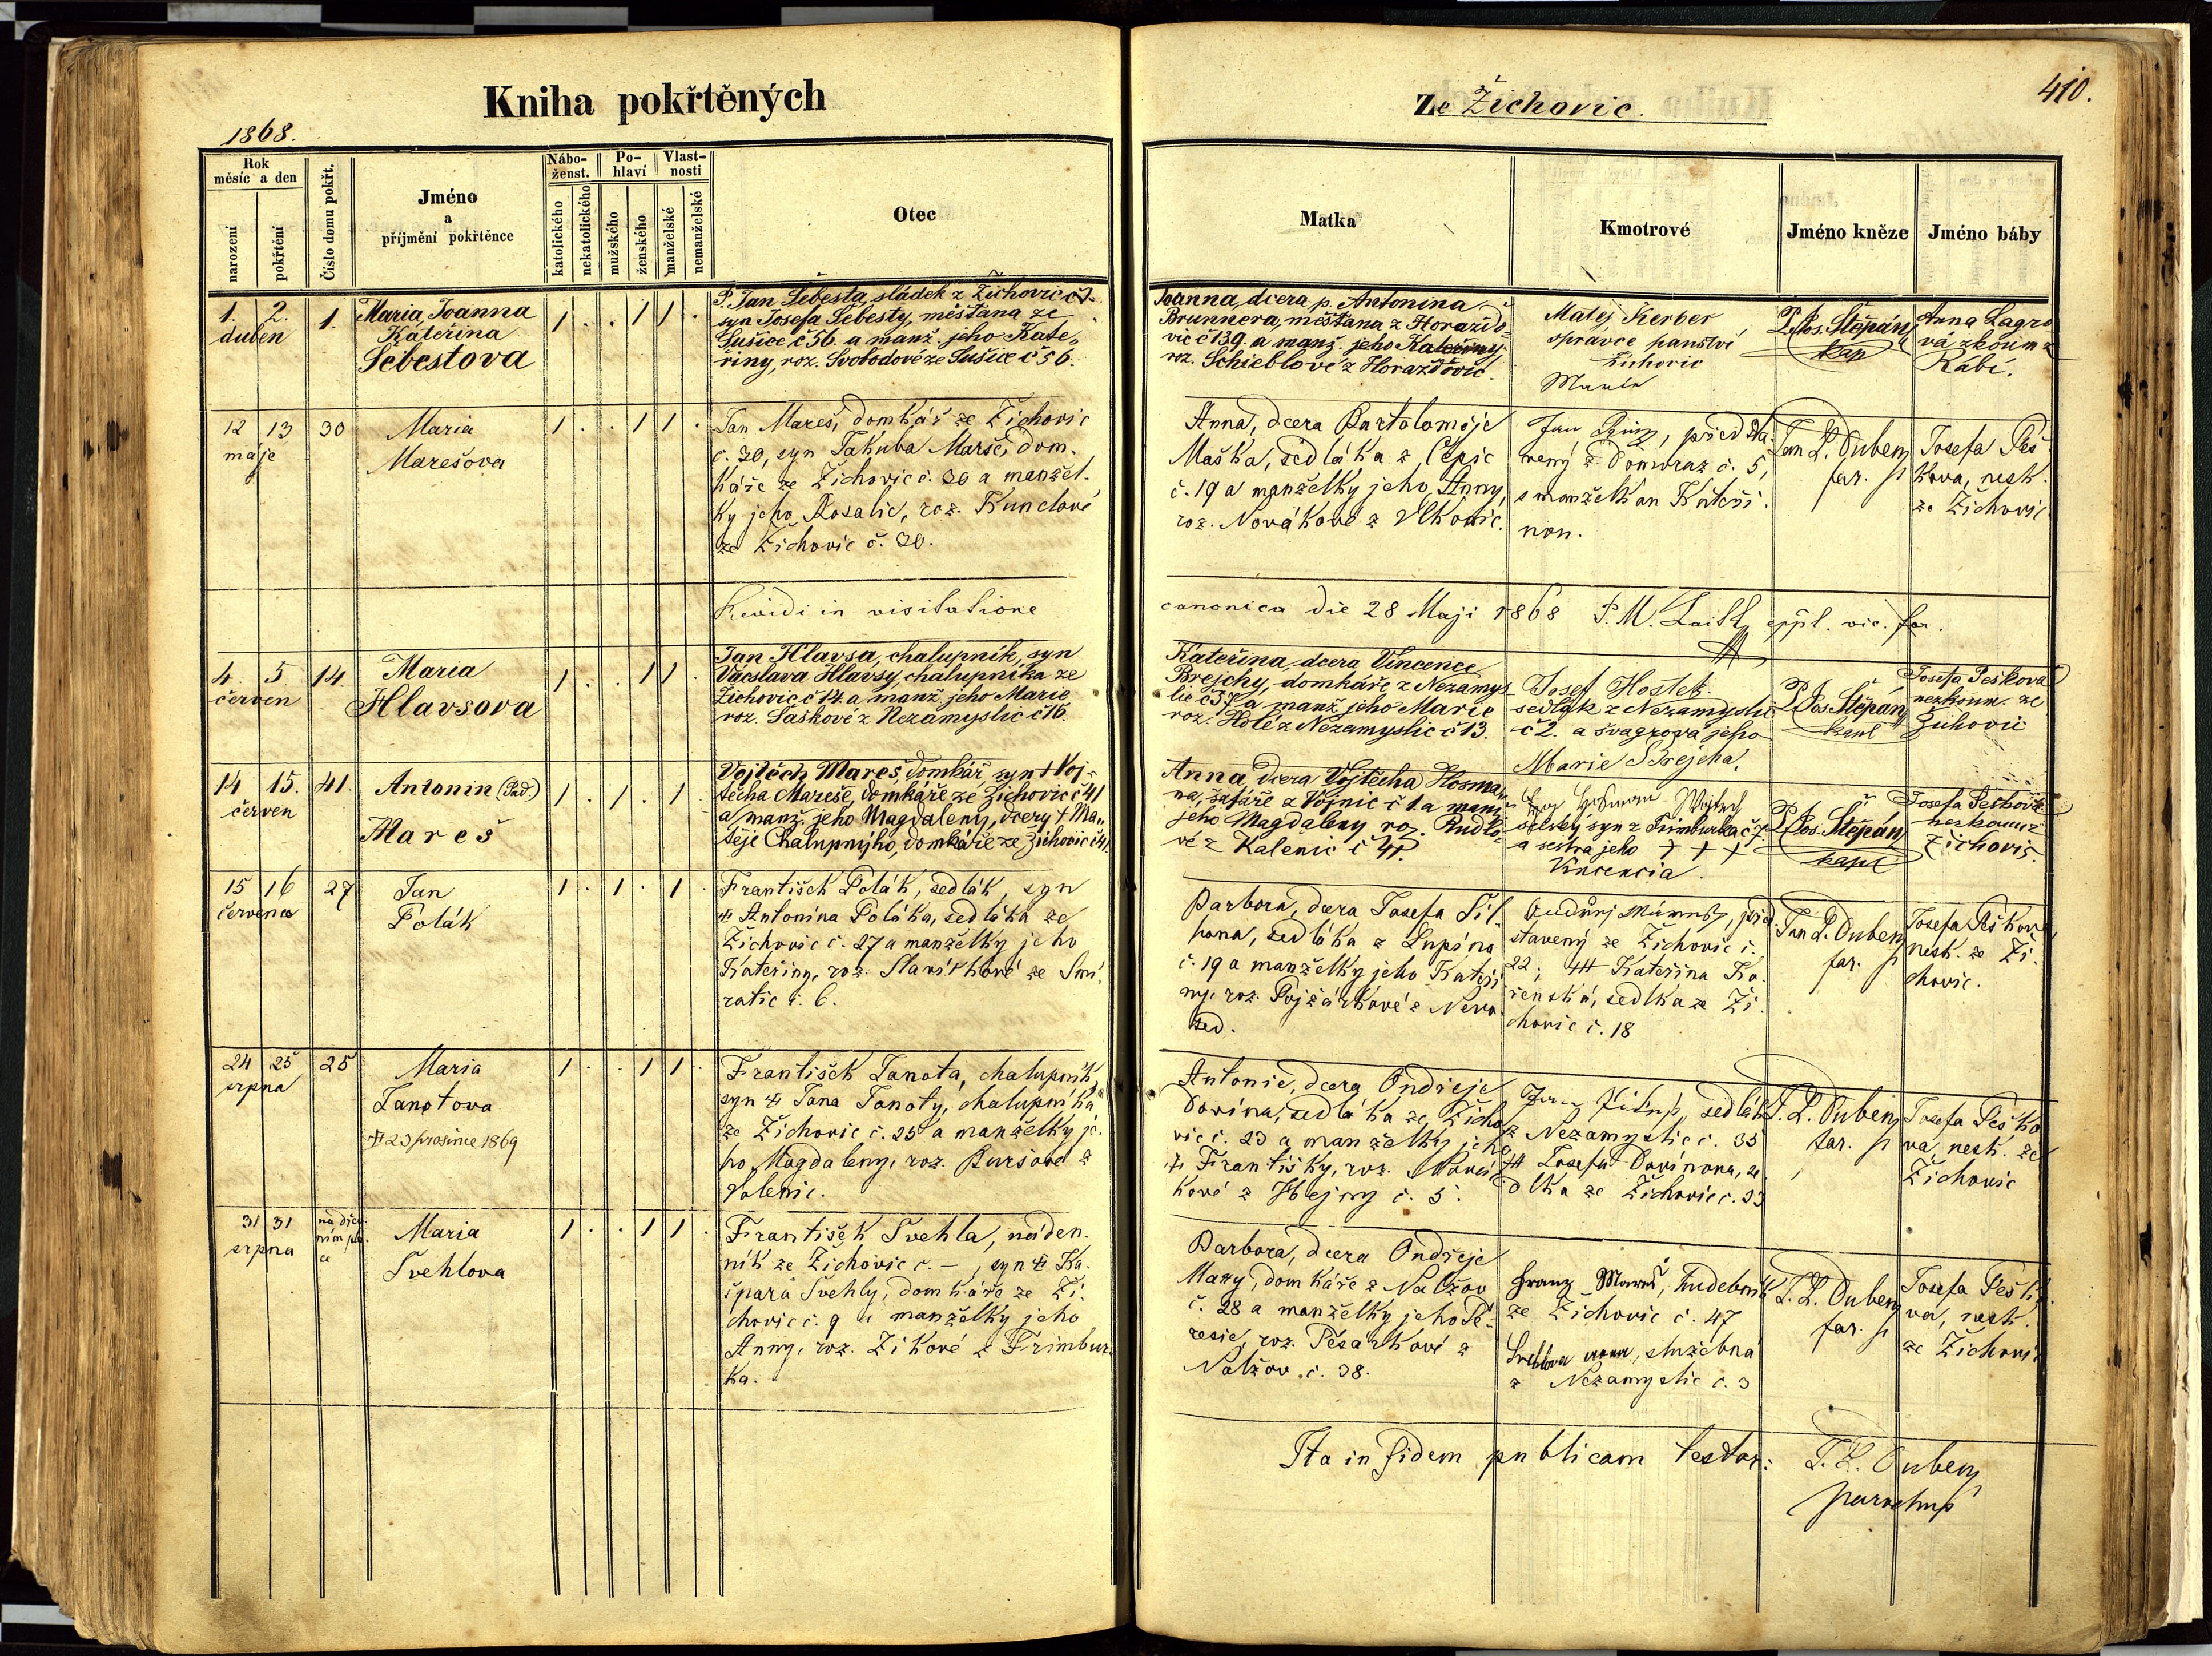 Kniha pokřtěných
Ze Žichovic.
410.
1868.
Rok
měsíc a den
narození
pokřtění
Číslo domu pokřt.
Jméno
a
příjmění pokřtěnce
Nábo-
ženst.
katolického
nekatolického
Po-
hlaví
mužského
ženského
Vlast-
nosti
manželské
nemanželské
Otec
Matka
Kmotrové
Jméno kněze
Jméno báby
1. 2.
duben
1.
Maria Joanna
Kateřina
Šebestova
1 . . 1 1 .
P. Jan Šebesta, sládek z Žichovic č 1.
syn Josefa Šebesty, měšťana ze
Sušice č 56. a manž. jeho Kate-
řiny, roz. Svobodové ze Sušice č 56.
Joanna dcera p. Antonina
Brunnera, měšťana z Horažďo-
vic č 139 a manž. jeho Kateřiny
roz. Schieblové z Horažďovic.
Matěj Kerber
správce panství
Žichovic
Marie
P. Jos. Štěpán
kap
Anna Lagro-
vá zkoum z
Rábí.
12 13
máje
30
Maria
Marešova
1 . . 1 1 .
Jan Mareš, domkář ze Žichovic
č. 30, syn Jakuba Marše, dom-
káře ze Žichovic č. 30 a manžel-
ky jeho Rosalie, roz. Kunclové
ze Žichovic č. 30.
Anna, dcera Bartoloměje
Maška, sedláka z Čepic
č. 19 a manželky jeho Anny,
roz. Novákové z Vlkonic.
Jan, představený z Domoraz č. 5,
s manželkau Kateři-
nou.
Jan L. Duben
far.
Josefa Peš-
kova, nezk.
ze Žichovic
Revidi in visitatione
canonica die 28 Maji 1868 P. M. Laitl, eppl. vic. for.
4. 5
červen
14.
Maria
Hlavsova
1 . . 1 1 .
Jan Hlavsa, chalupník, syn
Václava Hlavsy, chalupníka ze
Žichovic č 14. a manž. jeho Marie
roz. Šaškové z Nezamyslic č 16.
Kateřina dcera Vincence
Brejchy, domkáře z Nezamys-
lic č 37 a manž. jeho Marie
roz. Holé z Nezamyslic č 13.
Josef Hostek
sedlák z Nezamyslic
č 2. a švagrová jeho
Marie Brejcha.
P. Jos. Štěpán
kapl
Josefa Pešková
nezkoum. ze
Žichovic
14 15.
červen
41.
Antonín (Pad.)
Mareš
1 . 1 . 1 .
Vojtěch Mareš, domkář syn † Voj-
těcha Mareše, domkáře ze Žichovic č 41
a manž. jeho Magdaleny, dcery † Ma-
těje Chalupnýho, domkáře ze Žichovic č 41.
Anna dcera Vojtěcha Hosma-
na, šafáře z Vojnic č 1. a manž.
jeho Magdaleny roz. Rudlo-
vé z Kalenic č 41.
selský syn z Frimburka č 7
a sestra jeho † † †
Vincencia.
P. Jos. Štěpán
kapl
Josefa Pešková
nezkoum z
Žichovic.
15 16
června
27
Jan
Polák
1 . 1 . 1 .
František Polák, sedlák, syn
† Antonína Poláka, sedláka ze
Žichovic č. 27 a manželky jeho
Kateřiny, roz. Slavíkové ze Smi-
ratic č. 6.
Barbora, dcera Josefa Sil-
hona, sedláka z
č. 19 a manželky jeho Kateři-
ny, roz.
Ondřej, před-
stavený ze Žichovic č.
22; ††† Kateřina Ko-
řenská, sedlka ze Ži-
chovic č. 18
Jan L. Duben
far.
Josefa Peškova
nezk. ze Ži-
chovic.
24 25
srpna
25
Maria
Janotova
† 23 prosince 1869
1 . . 1 1 .
František Janota, chalupník,
syn † Jana Janoty, chalupníka
ze Žichovic č. 25 a manželky je-
ho Magdaleny, roz. Buršové z
Volenic.
Antonie, dcera Ondřeje
Dovína, sedláka ze Žicho-
vic č. 23 a manželky jeho
† Františky, roz.
kové z Hejny č. 5.
sedlák
z Nezamyslic č. 35
††† Josefa Dovinova, se-
dlka ze Žichovic č. 23
J. L. Duben
far.
Josefa Peško-
va, nezk. ze
Žichovic
31 31
srpna
Maria
Švehlova
1 . . 1 1 .
František Švehla, náden-
ník ze Žichovic č. –, syn † Ka-
špara Švehly, domkáře ze Ži-
chovic č. 9 a manželky jeho
Anny, roz. Zikové z Frimbur-
ka.
Barbora, dcera Ondřeje
Mazy, domkáře z Nalžov
č. 28 a manželky jeho Te-
resie, roz. Pešárkové z
Nalžov č. 38.
Franz Mareš, hudebník
ze Žichovic č. 47
služebná
z Nezamyslic č. 3
J. L. Duben
far.
Josefa Peško-
va, nezk.
ze Žichovic
Ita in fidem publicam testor: J. L. Duben
parochus